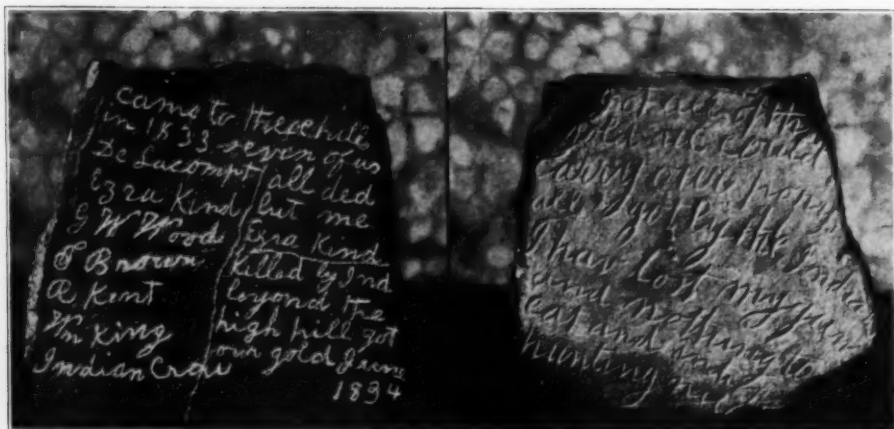 came to these hills
in 1833 seven of us
De Lacompt
Ezra Kind
G W Wood
T Brown
R Kent
Wm King
Indian Crow
all ded
but me
Ezra Kind
Killed by Ind
beyond the
high hill got
our gold June
1834
Got all of the
gold we could
carry our ponys
all got by the Indians
I hav lost my gun
and nothing to
eat and
hunting me